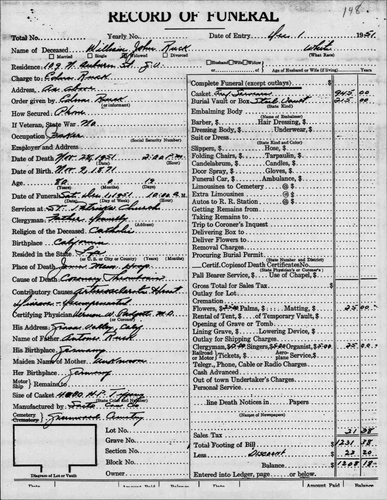 RECORD OF FUNERAL
148
Total No. Yearly No. Date of Entry Dec. 1 1951
Name of Deceased William John Ruck White
Married Single Widowed Divorced (What Race)
Residence: St. G.V. Age of Husband or Wife (if living) Years
Charge to: Ruck
Address As above
Order given by Ruck
How Secured: Phone
If Veteran, State War No.
Occupation
(Social Security Number)
Employer and Address
Date of Death Nov. 28, 1951 2:00 P.M.
Date of Birth Nov. 9, 1871
Age: 80 0 19
(Years) (Months) (Days)
Date of Funeral Sat. Dec. 1, 1951 10:00 A.M.
Services at St. Patricks Church
Clergyman Father
Religion of the Deceased Catholic
Birthplace California
Resided in the State Life
(In U.S. or City or County)
Place of Death
Cause of Death Coronary Thrombosis
Contributory Causes Arteriosclerotic Heart
Disease
Certifying Physician Vernon W. Padgett M.D.
His Address Grass Valley, Calif
Name of Father Antone Ruck
His Birthplace Germany
Maiden Name of Mother Unknown
Her Birthplace Germany
Motor Ship Remains
Size of Casket
Manufactured by
Cemetery Crematory Greenwood Cemetery
Lot No.
Grave No.
Section No.
Block No.
Owner
Diagram of Lot or Vault
Complete Funeral (except outlays) $
Casket Services 945 00
Burial Vault or Box Steel Vault 215 00
Embalming Body
(Name of Embalmer)
Barber, $ Hair Dressing, $
Dressing Body, $ Underwear, $
Suit or Dress
(State Kind and Color)
Slippers, $ Hose, $
Folding Chairs, $ Tarpaulin, $
Candelabrum, $ Candles, $
Door Spray, $ Gloves, $
Funeral Car, $ Ambulance, $
Limousines to Cemetery @ $
Extra Limousines @ $
Autos to R. R. Station @ $
Getting Remains from
Taking Remains to
Trip to Coroner's Inquest
Delivering Box to
Deliver Flowers to
Removal Charges
Procuring Burial Permit
(State Number and District)
Certif. Copies of Death Certificates No.
(State Physician's or Coroner's)
Pall Bearer Service, $ Use of Chapel, $
Gross Total for Sales Tax $
Outlay for Lot
Cremation
Flowers, $ Palms, $ Matting, $ 25 00
Rental of Tent, $ of Temporary Vault, $
Opening of Grave or Tomb
Lining Grave, $ Lowering Device, $
Outlay for Shipping Charges
Clergyman, $ Singers, $ Organist, $ 5.00 25 00
Railroad or Motor Tickets, $ Aeroplane Service, $
Telegr., Phone, Cable or Radio Charges
Cash Advanced
Out of town Undertaker's Charges
Personal Service
line Death Notices in Papers
(Names of Newspapers)
Sales Tax 31 38
Total Footing of Bill $ 1231 38
Less Discount 23 20
Balance 1208 18
Entered into Ledger, page or below.
Amount Paid Balance Date Amount Paid Balance